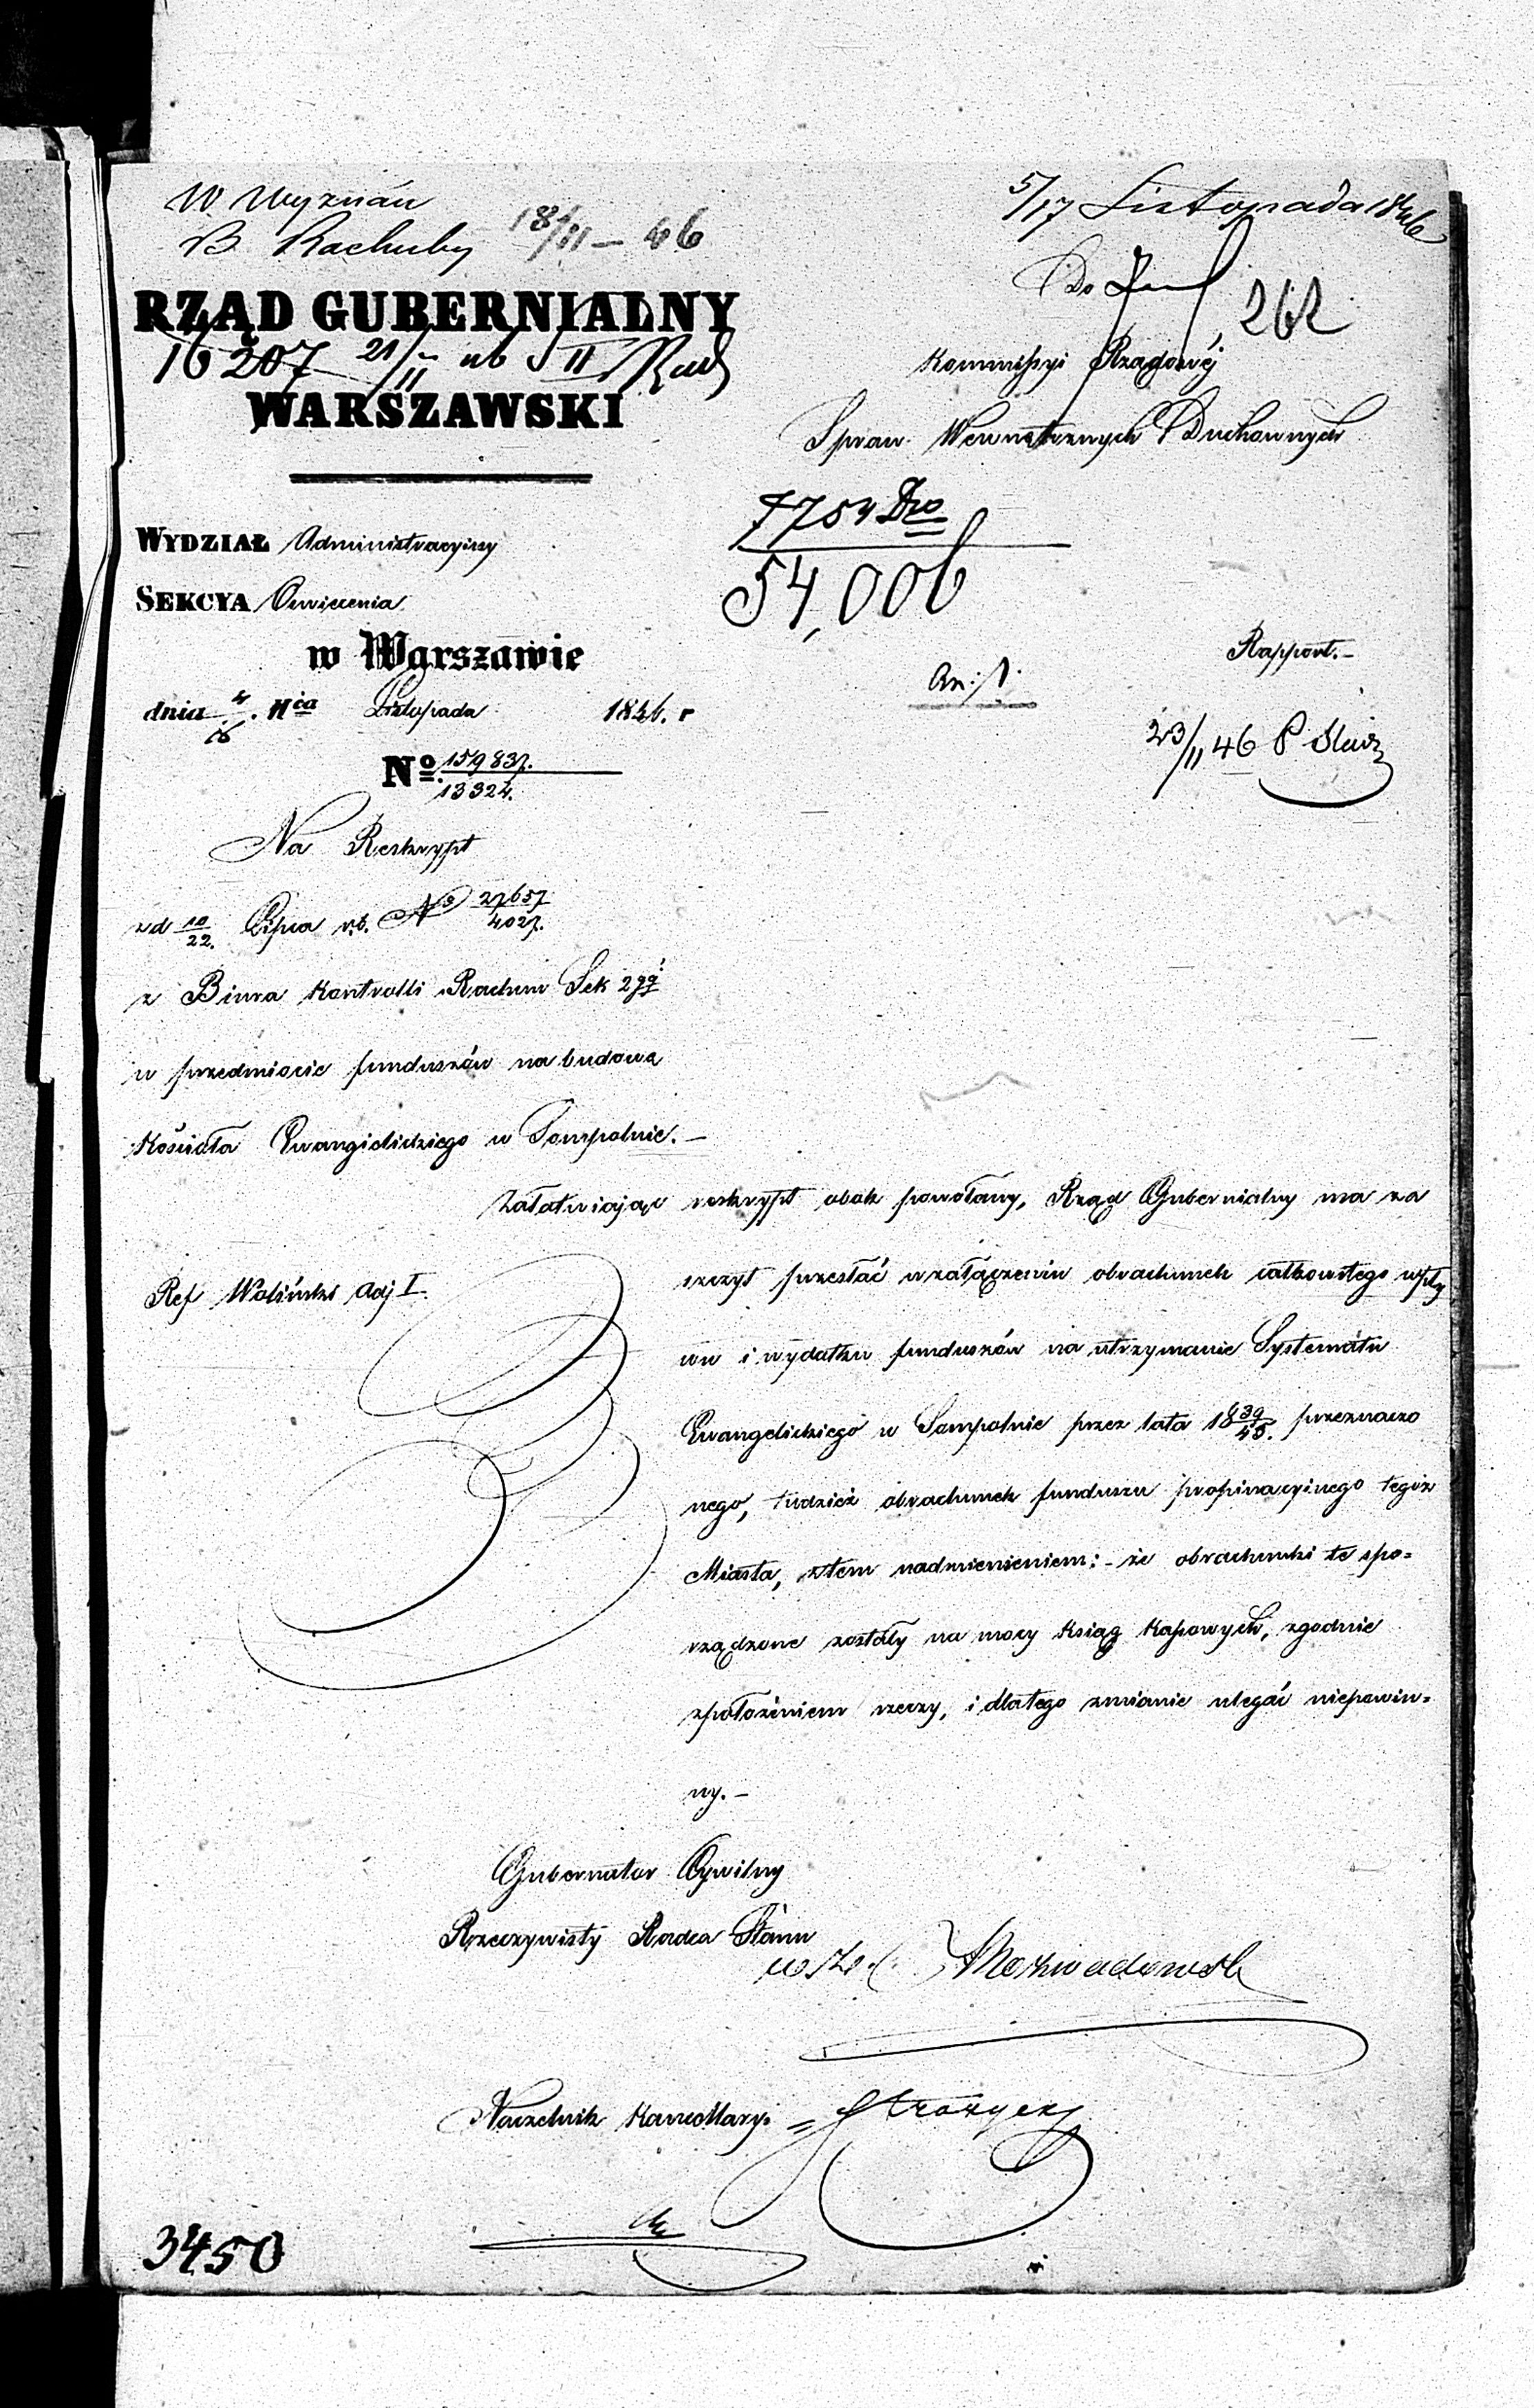 W. Wyznań
B. Rachuby 18/11 – 46
5/17 Listopada 1846
262
RZĄD GUBERNIALNY
16207 21/11 46 II
WARSZAWSKI
Do
Kommissyi Rządowéj
Spraw Wewnętrznych i Duchownych
7754
54,006
WYDZIAŁ Administracyjny
SEKCYA Oswiecenia
w Warszawie
dnia 4/16. Mca Listopada 1846. r
No. 159837./13324.
Rapport. –
An: 1.
23/11 46
Na Reskrypt
z d 10/22. Lipca r.b. No 27657/4027.
z Biura Kontrolli Rachun Sek 2giéj
w przedmiocie funduszów na budowę
Kościoła Ewangielickiego w Sompolnie. –
Załatwiając reskrypt obok powołany, Rząd Gubernialny ma za
szczyt przesłać w załączeniu obrachunek całkowitego wpły
Ref Woliński Adj I.
wu i wydatku funduszów na utrzymanie Systematu
Ewangelickiego w Sompolnie przez lata 18 39/45. przeznaczo
nego, tudzież obrachunek funduszu propinacyinego tegoż
Miasta, z tem nadmienieniem: – że obrachunki te spo=
rządzone zostały na mocy Ksiąg Kassowych, zgodnie
z położeniem rzeczy, i dlatego zmianie ulegać niepowin=
ny. –
Gubernator Cywilny
Rzeczywisty Radca Stanu
Naczelnik Kancellaryi
3450